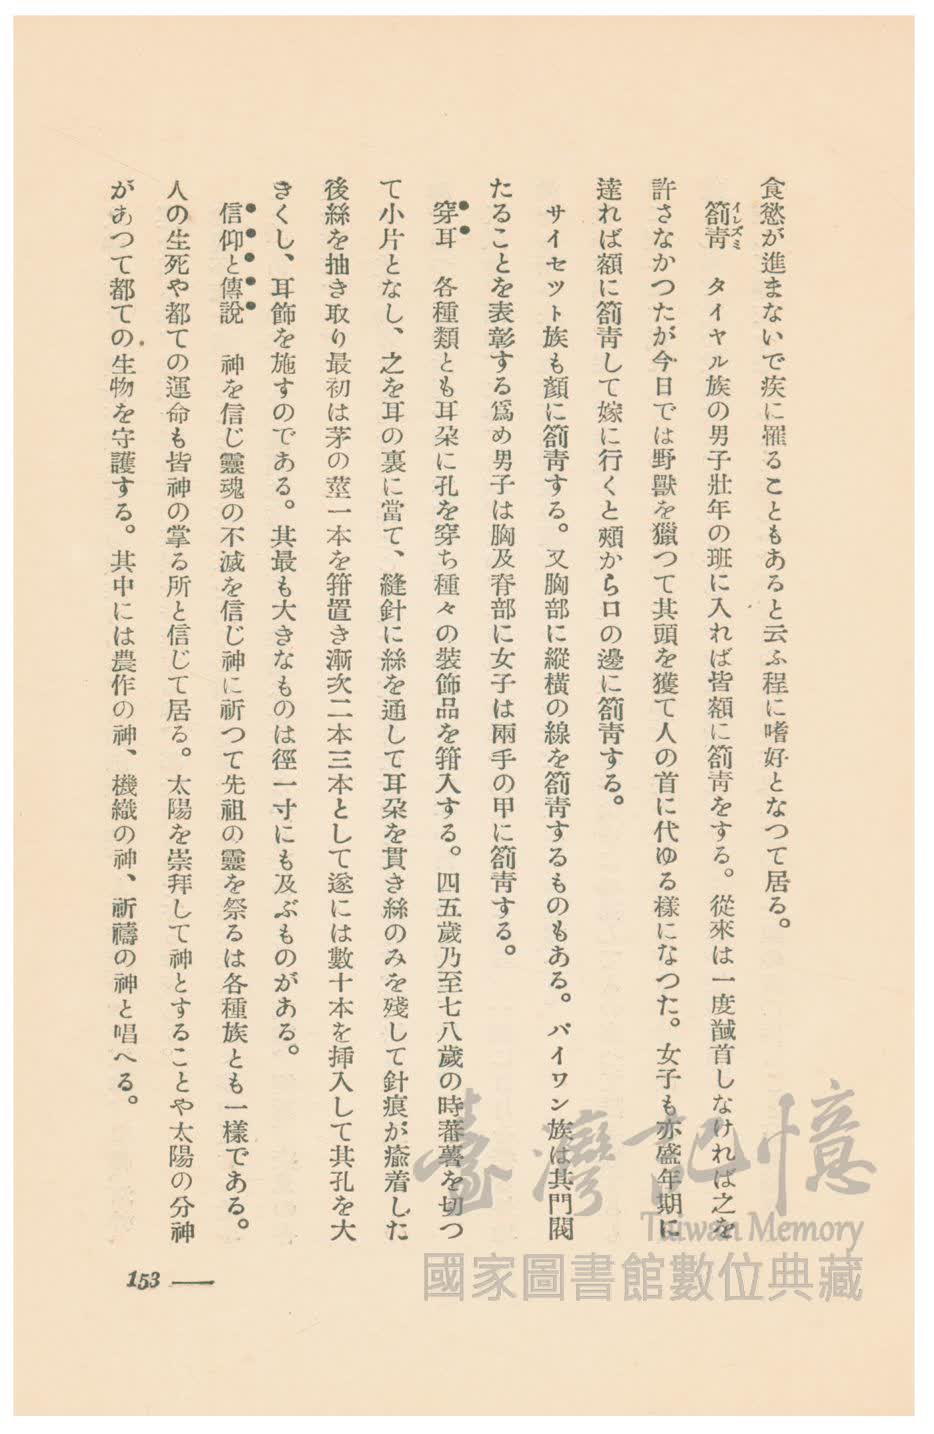 食慾が進まないで疾に罹ることもあると云ふ程に嗜好となつて居る。
箚靑 タイヤル族の男子壯年の班に入れば皆額に箚靑をする。從來は一度馘首しなければ之を
イレズミ
許さなかつたが今日では野獸を獵つて其頭を獲て人の首に代ゆる樣になつた。女子も亦盛年期に
達れば額に箚靑して嫁に行くと頰から口の邊に箚靑する。
サイセツト族も顏に箚靑する。又胸部に縱橫の線を箚靑するものもある。パイワン族は其門閥
たることを表彰する爲め男子は胸及脊部に女子は兩手の甲に箚靑する。
穿耳 各種類とも耳朶に孔を穿ち種々の裝飾品を箝入する。四五歲乃至七八歲の時蕃薯を切つ
て小片となし、之を耳の裏に當て、縫針に絲を通して耳朶を貫き絲のみを殘して針痕が癒着した
後絲を抽き取り最初は茅の莖一本を箝置き漸次二本三本として遂には數十本を揷入して其孔を大
きくし、耳飾を施すのである。其最も大きなものは徑一寸にも及ぶものがある。
信仰と傳說 神を信じ靈魂の不滅を信じ神に祈つて先祖の靈を祭るは各種族とも一樣である。
人の生死や都ての運命も皆神の掌る所と信じて居る。太陽を崇拜して神とすることや太陽の分神
があつて都ての生物を守護する。其中には農作の神、機織の神、祈禱の神と唱へる。
153
臺灣記憶
Taiwan Memory
國家圖書館數位典藏